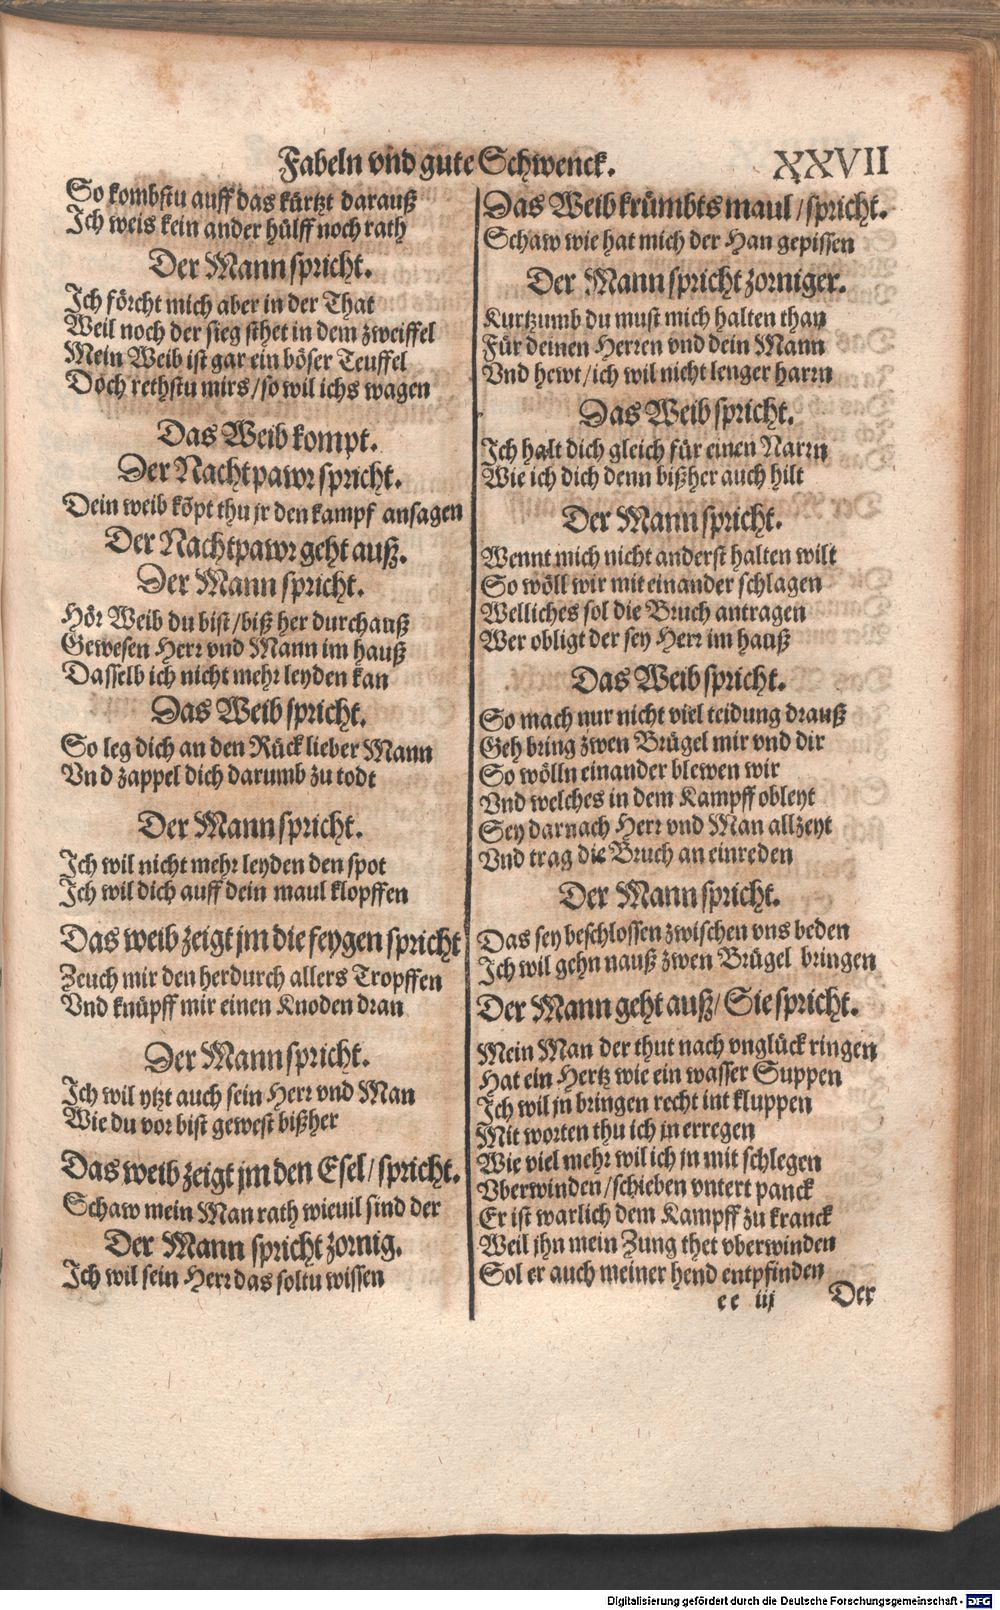 Fabeln vnd gute Schwenck. XXVII
So kombstu auff das kürtzt darauß
Ich weis kein ander hülff noch rath
Der Mann spricht.
Ich förcht mich aber in der That
Weil noch der sieg sthet in dem zweiffel
Mein Weib ist gar ein böser Teuffel
Doch rethstu mirs/so wil ichs wagen
Das Weib kompt.
Der Nachtpawr spricht.
Dein weib kōpt thu jr den kampf ansagen
Der Nachtpawr geht auß.
Der Mann spricht.
Hör Weib du bist/biß her durchauß
Gewesen Herr vnd Mann im hauß
Dasselb ich nicht mehr leyden kan
Das Weib spricht.
So leg dich an den Rück lieber Mann
Vnd zappel dich darumb zu todt
Der Mann spricht.
Ich wil nicht mehr leyden den spot
Ich wil dich auff dein maul klopffen
Das weib zeigt jm die feygen spricht
Zeuch mir den herdurch allers Tropffen
Vnd knüpff mir einen Knoden dran
Der Mann spricht.
Ich wil ytzt auch sein Herr vnd Man
Wie du vor bist gewest bißher
Das weib zeigt jm den Esel/spricht.
Schaw mein Man rath wieuil sind der
Der Mann spricht zornig.
Ich wil sein Herr das soltu wissen
Das Weib krümbts maul/spricht.
Schaw wie hat mich der Han gepissen
Der Mann spricht zorniger.
Kurtzumb du must mich halten than
Für deinen Herren vnd dein Mann
Vnd hewt/ich wil nicht lenger harrn
Das Weib spricht.
Ich halt dich gleich für einen Narrn
Wie ich dich denn bißher auch hilt
Der Mann spricht.
Wennt mich nicht anderst halten wilt
So wöll wir mit einander schlagen
Welliches sol die Bruch antragen
Wer obligt der sey Herr im hauß
Das Weib spricht.
So mach nur nicht viel teidung drauß
Geh bring zwen Brügel mir vnd dir
So wölln einander blewen wir
Vnd welches in dem Kampff obleyt
Sey darnach Herr vnd Man allzeyt
Vnd trag die Bruch an einreden
Der Mann spricht.
Das sey beschlossen zwischen vns beden
Ich wil gehn nauß zwen Brügel bringen
Der Mann geht auß/Sie spricht.
Mein Man der thut nach vnglück ringen
Hat ein Hertz wie ein wasser Suppen
Ich wil jn bringen recht int kluppen
Mit worten thu ich jn erregen
Wie viel mehr wil ich jn mit schlegen
Vberwinden/schieben vntert panck
Er ist warlich dem Kampff zu kranck
Weil jhn mein Zung thet vberwinden
Sol er auch meiner hend entpfinden
ee iij Der
Digitalisierung gefördert durch die Deutsche Forschungsgemeinschaft - DFG